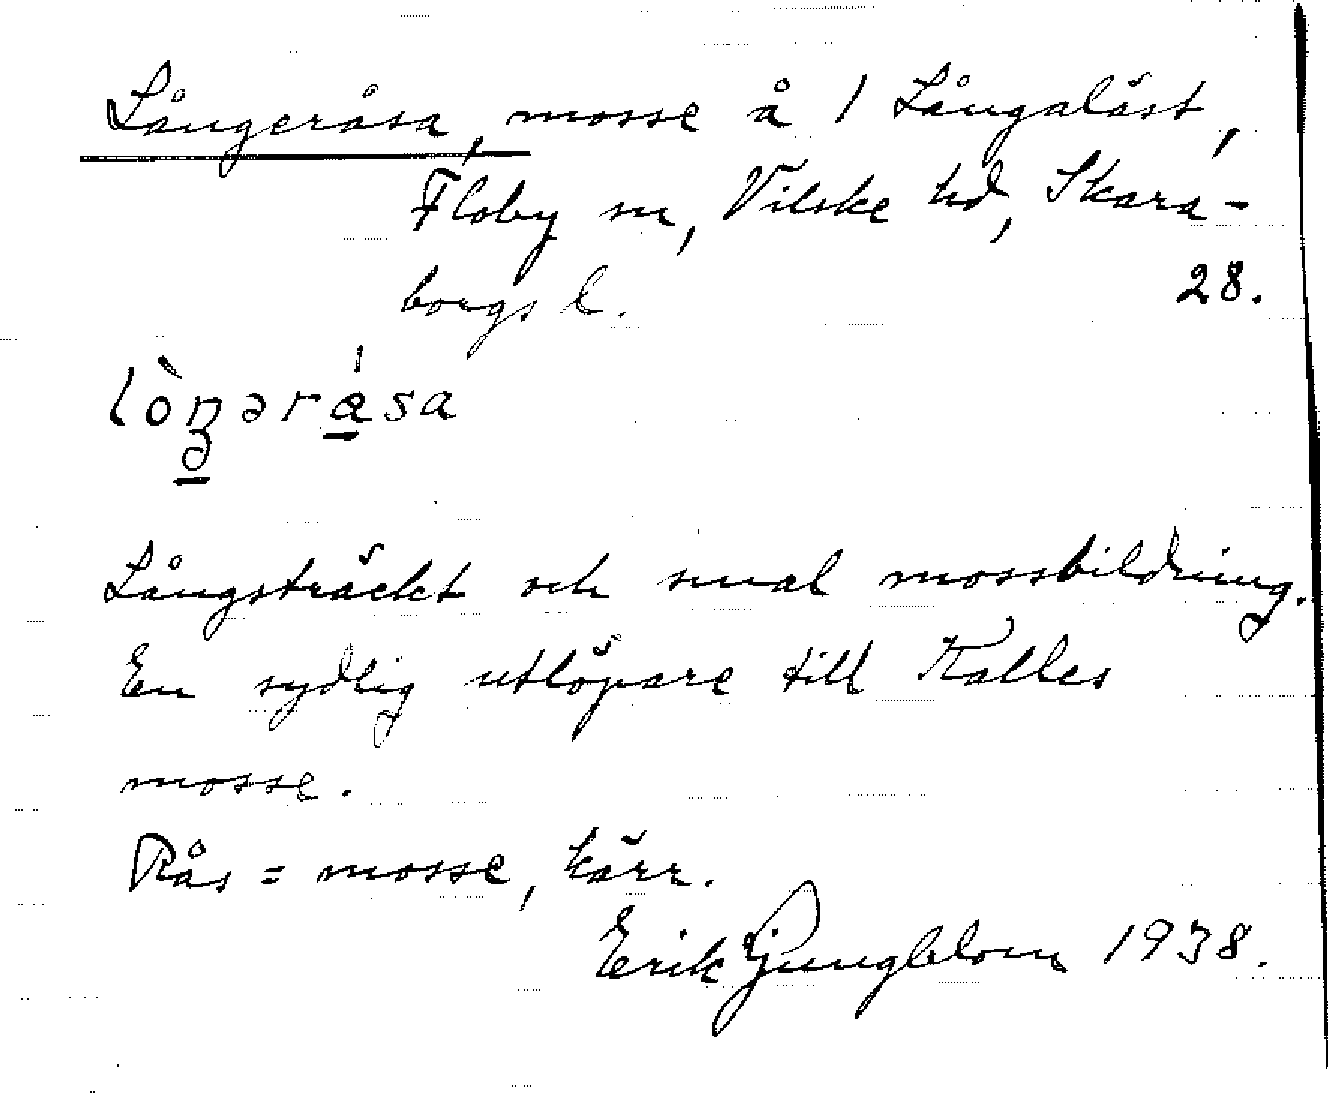 Långeråsa, mosse å 1 Långaläst,
Floby sn, Vilske hd, Skara-
borgs l.
28.
Långsträckt och smal mossbildning.
En sydlig utlöpare till Kalles
mosse.
Rås = mosse, kärr.
Erik Ljungblom 1938.